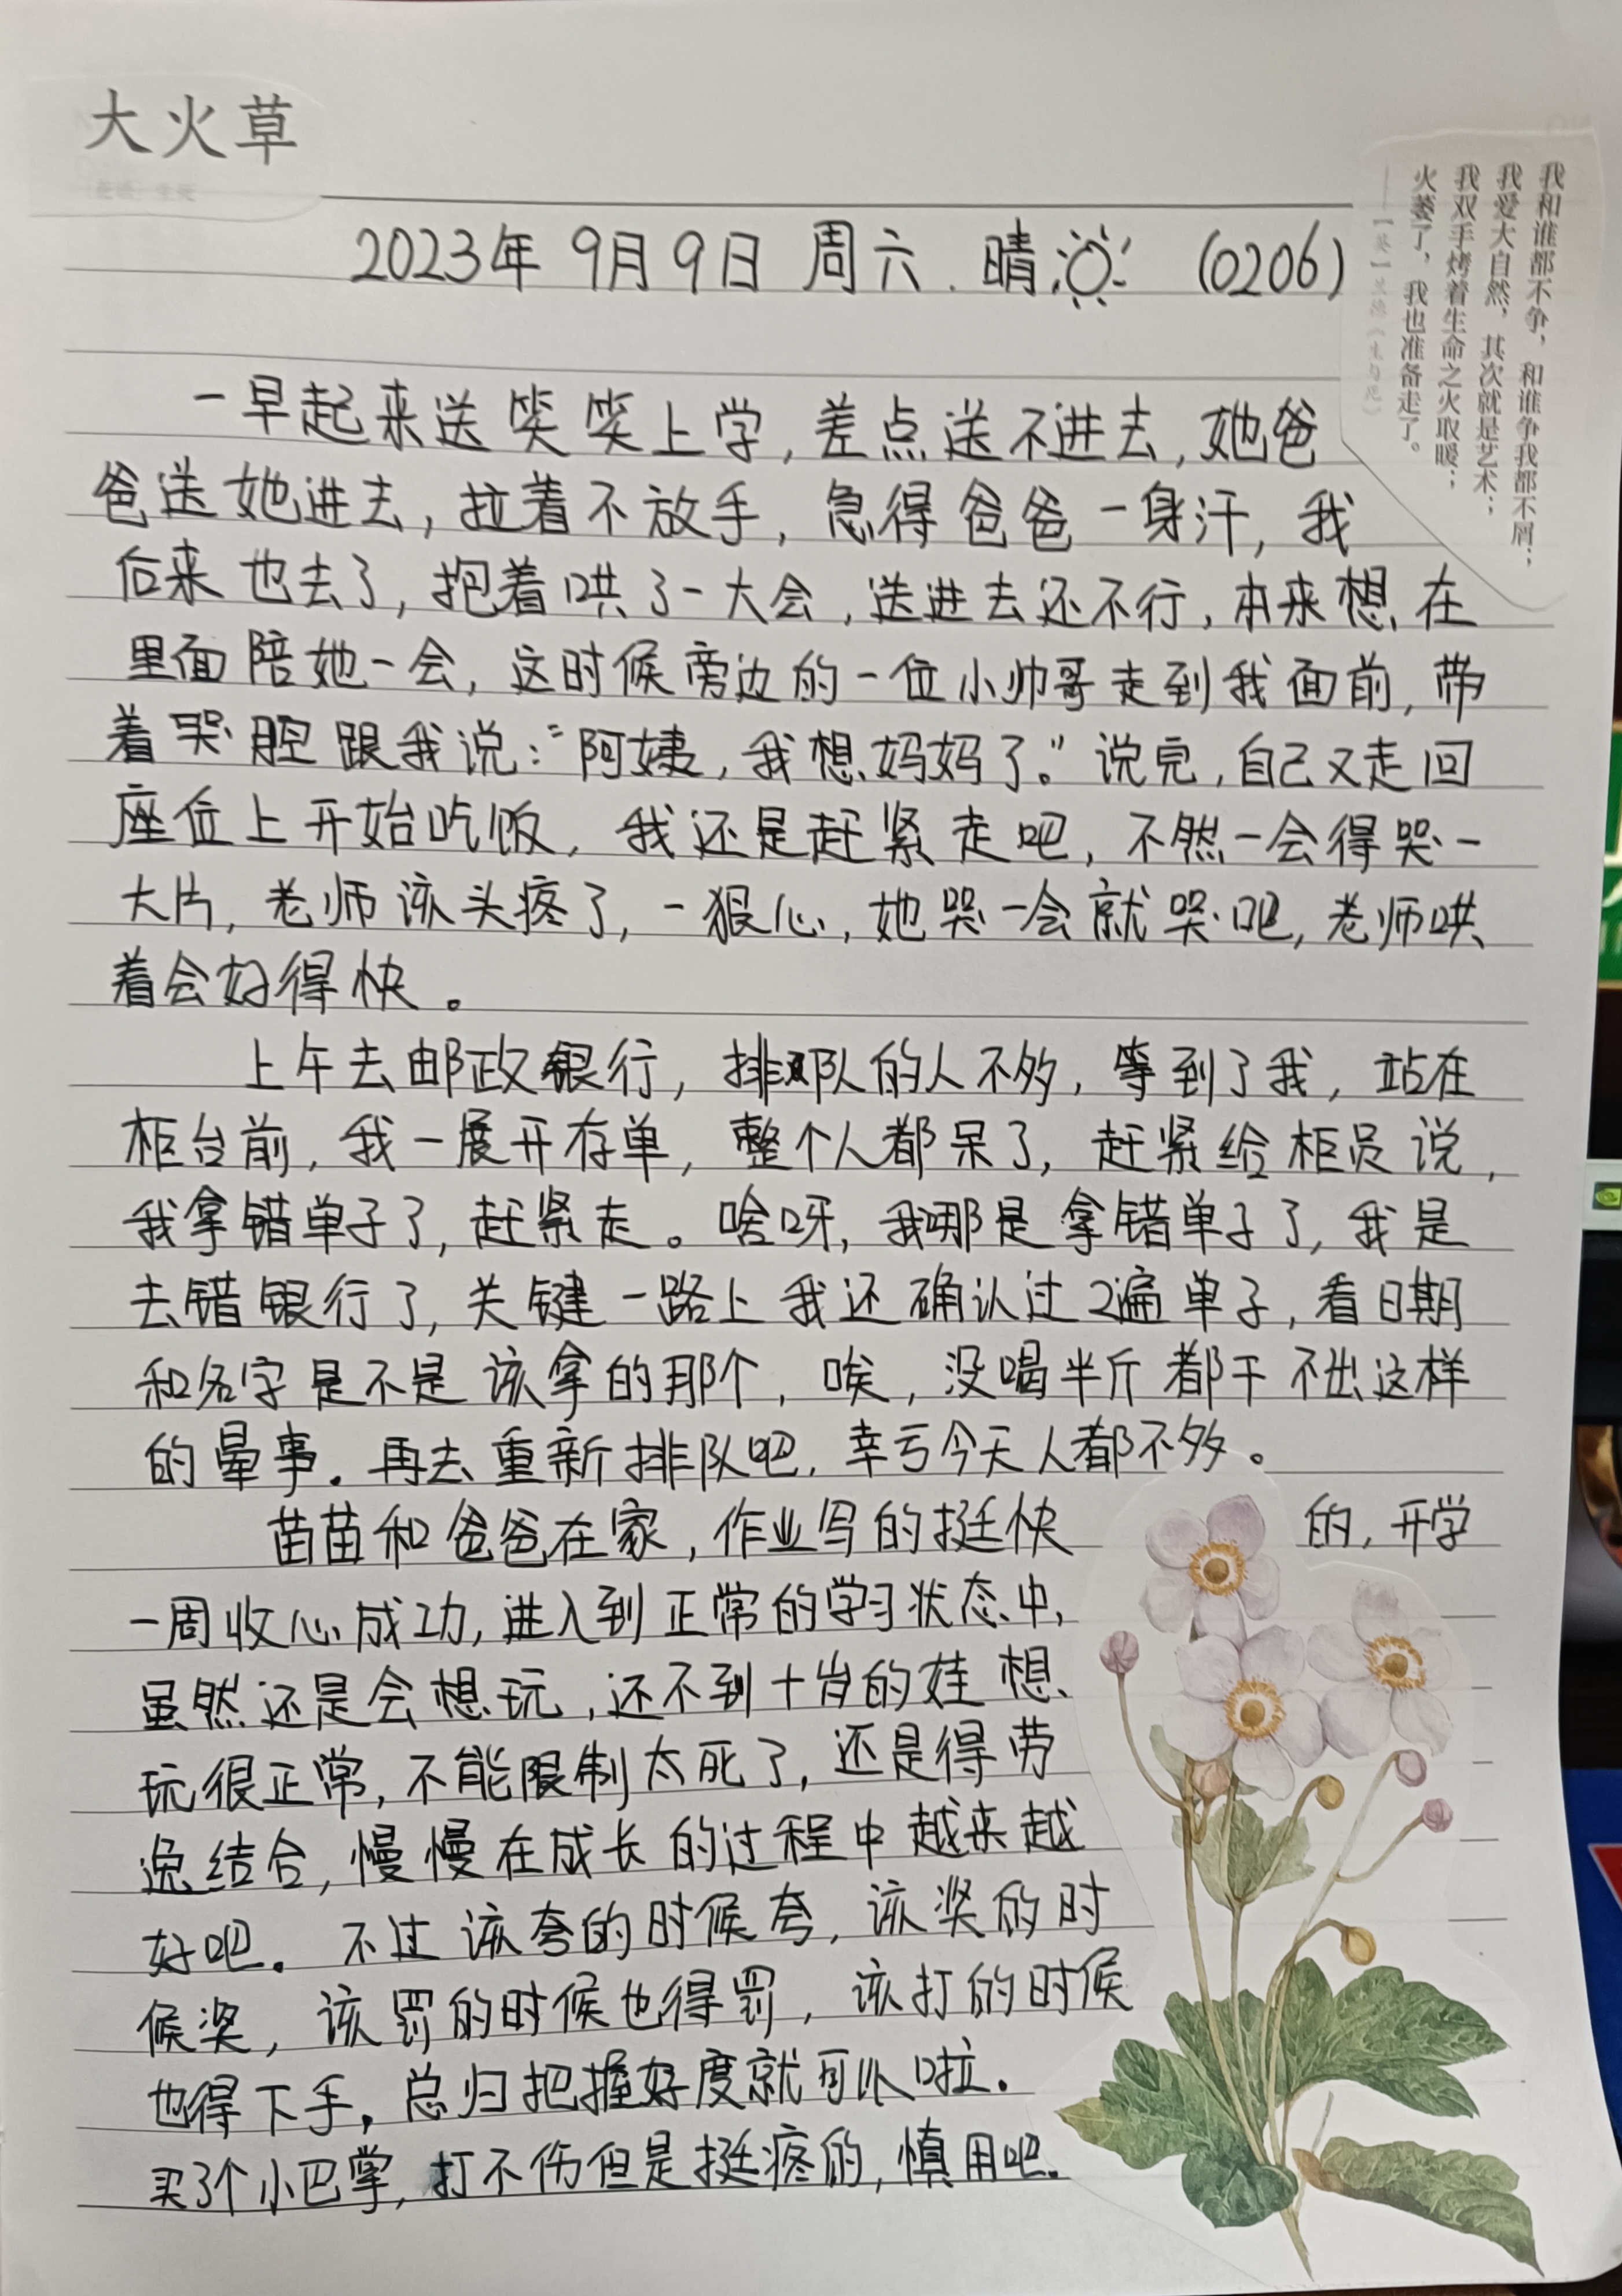 大火草
2023年 9月9日 周六 . 晴 (0206)
我和谁都不争，和谁争我都不屑；
我爱大自然，其次就是艺术；
我双手烤着生命之火取暖；
火萎了，我也准备走了。
——［英］兰德《生与死》
一早起来送笑笑上学，差点送不进去，她爸
爸送她进去，拉着不放手，急得爸爸一身汗，我
后来也去了，抱着哄了一大会，送进去还不行，本来想在
里面陪她一会，这时候旁边的一位小帅哥走到我面前，带
着哭腔跟我说：“阿姨，我想妈妈了。”说完，自己又走回
座位上开始吃饭，我还是赶紧走吧，不然一会得哭一
大片，老师该头疼了，一狠心，她哭一会就哭吧，老师哄
着会好得快。
上午去邮政银行，排队的人不多，等到了我，站在
柜台前，我一展开存单，整个人都呆了，赶紧给柜员说，
我拿错单子了，赶紧走。啥呀，我哪是拿错单子了，我是
去错银行了，关键一路上我还确认过2遍单子，看日期
和名字是不是该拿的那个，唉，没喝半斤都干不出这样
的晕事。再去重新排队吧，幸亏今天人都不多。
苗苗和爸爸在家，作业写的挺快的，开学
一周收心成功，进入到正常的学习状态中，
虽然还是会想玩，还不到十岁的娃想
玩很正常，不能限制太死了，还是得劳
逸结合，慢慢在成长的过程中越来越
好吧。不过该夸的时候夸，该奖的时
候奖，该罚的时候也得罚，该打的时候
也得下手，总归把握好度就可以啦。
买了个小巴掌，打不伤但是挺疼的，慎用吧。